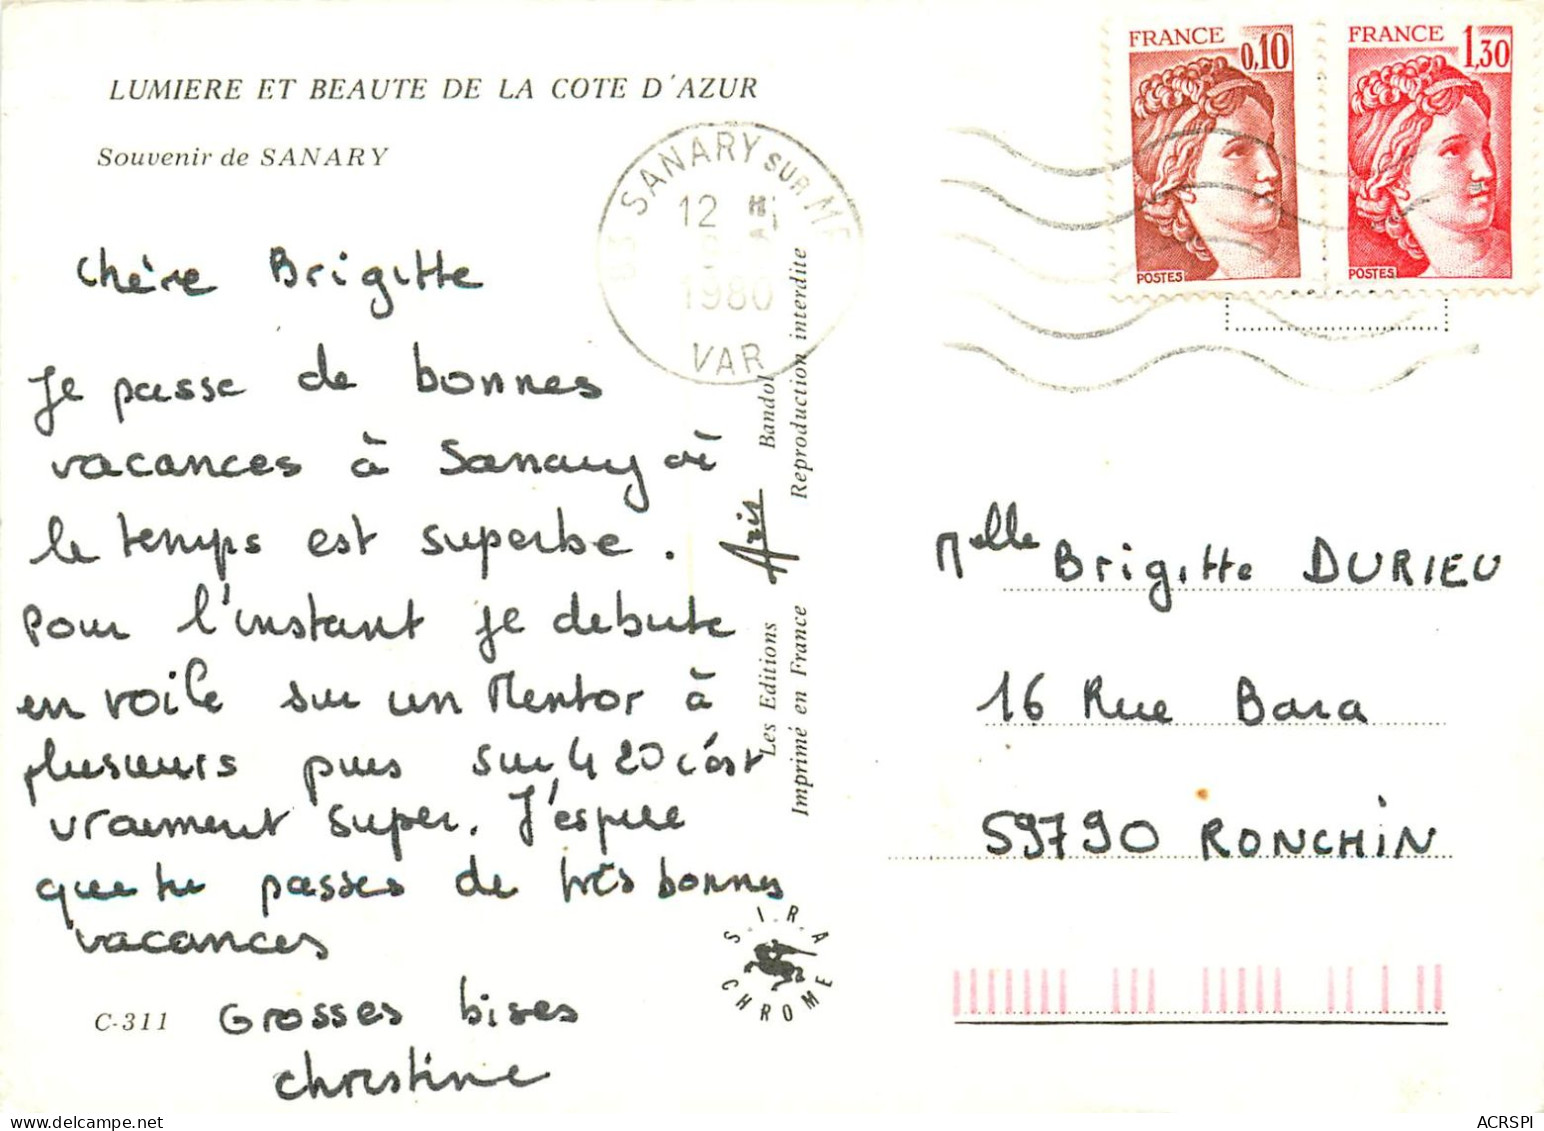 LUMIERE ET BEAUTE DE LA COTE D'AZUR
Souvenir de SANARY
Chère Brigitte
Je passe de bonnes
vacances à Sanary où
le temps est superbe.
Pour l'instant je debute
en voile sur un Mentor à
plusieurs puis sur 420 c'est
vraiment super. J'espère
que tu passes de très bonnes
vacances
Grosses bises
Christine
C-311
SANARY SUR ME
12 H
1980
VAR
Les Editions Azis Bandol
Imprimé en France Reproduction interdite
S.I.R.A
CHROME
FRANCE
0,10
POSTES
FRANCE
1,30
POSTES
Melle Brigitte DURIEU
16 Rue Bara
59790 RONCHIN
ACRSPI